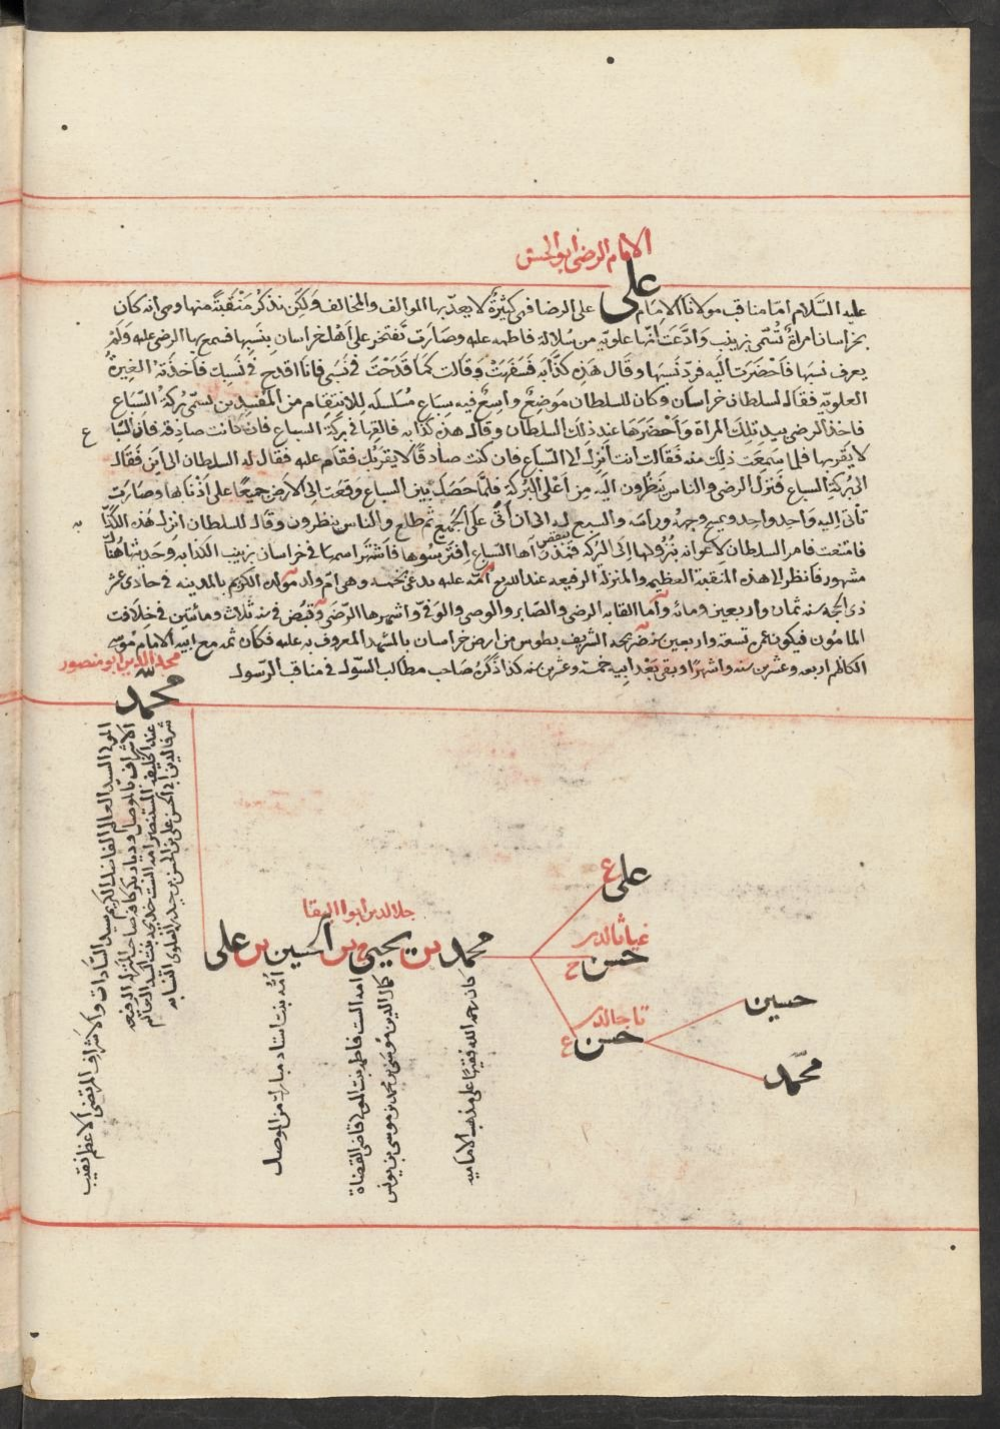 الامام الرضى ابو الحسن
على
عليه السّلام امّا مناقب مولانا الامام على الرضا فهى كثيرةٌ لا يعدّ بها الموالف والمخالف ولكن نذكر مَنْقَبَةً منها وهى انه كان
بخراسان امراةٌ تُسمّى زينب وَادّعَت انّها علويّه من سُلالة فاطمه عليه وصارت تفتخر على اَهل خراسان بنسبها فسمع بها الرضى عليه ولم
يعرف نسبها فاَحْضَرَت اليه فردّ نسبها وقال هَذِه كذّابه فَسَفِهَتْ وَقالت كمَا قَدَحْتَ فى نسَبى فانا اقدح فى نَسَبك فاخذته الغِيرة
العلويّه فقال لسلطان خراسان وكان للسلطان مَوضِعٌ واسِعٌ فيه سِبَاع مُسَلسَله للانتقام من المفسدين تسمّى بركة السّباع
فاخذ الرضى بيد تلك المراة وَاَحْضَرَها عند ذلك السلطان وقال هذه كذّابه فالقِها فى بركَةِ السباع فان كانت صادقه فان السّباع
لا يقربها فلما سَمِعَت ذلك منه فقالت انت اَنزِل الى السّباع فان كنت صادقًا لا يقربك فقام عليه فقال له السلطان الى اين فقال
الى بركة السباع فنزل الرضى والناس ينظرون اليه من اعلى البركه فلمّا حصَل بين السباع وقعَت الى الارض جميعًا على اذنابها وصارت
تاتى اليه واحد واحد ويمسح وجهه وراسه والسبع له الى ان اَتى على الجَمِيع ثم طلع والناس ينظرون وقال للسلطان انزل هذه الكذّابه
فامتنعت فامر السلطان لاعوانه بنُزُولها الى البركه فَنَذَر اها السّباع افترسُوها فاَشْتَهَر اسمها فى خراسان بزينب الكذابه وحديثها هُناك
مشهور فانظر الى هذه المنقبة العظيمه والمنزلة الرفيعه عند الله مع اُمّه عليه يدعى نجمه وهى اُم ولد مولده الكريم بالمدينه فى حادى عشر
ذى الحجه سنه ثمان واربعين ومائه وَاما القابه الرضى والصّابر والوصى والوفى واشهرها الرّضَى وقبُض فى سنه ثلاث ومائتين فى خِلافت
المامُون فيكون عمره تسعة واربعين سنه ضريحه الشريف بطوس من ارض خراسان بالمشهد المعروف به عليه فكان ثمّه مع ابيه الامام موسى
الكاظم اربعه وعشرين سنه واشهرًا وبقى بَعْد ابيه خمسة وعشرين سنه كذا ذكره صاحب مطالب السّوَل فى مناقب الرّسول
مجد الدين ابو منصور
محمد
المولى السيد العالم الفاضل الكريم سيد السّادات والاشراف المرتضى الاعظم نقيب
الاشراف بالموصل وديار بكر كان صاحب المنزلة الرفيعه
عند الخليفه المستنصر امه الست خديجه بنت السيد العالم
شرف الدين ابى الحسن على بن الحسن بن حيدر العلوى النسابه
جلال الدين ابو البقا
محمد بن يحيى بن الحسين بن على
امّه بنت استاد مبارك من الموصل
امه الست فاطمه بنت المولى قاضى القضاة
كمال الدين موسى بن محمد بن موسى بن يونس
كان رحمه الله فقيهًا على مذهب الاماميه
على ع
غياث الدين
حسن ح
تاج الدين
حسن ع
حسين
محمّد